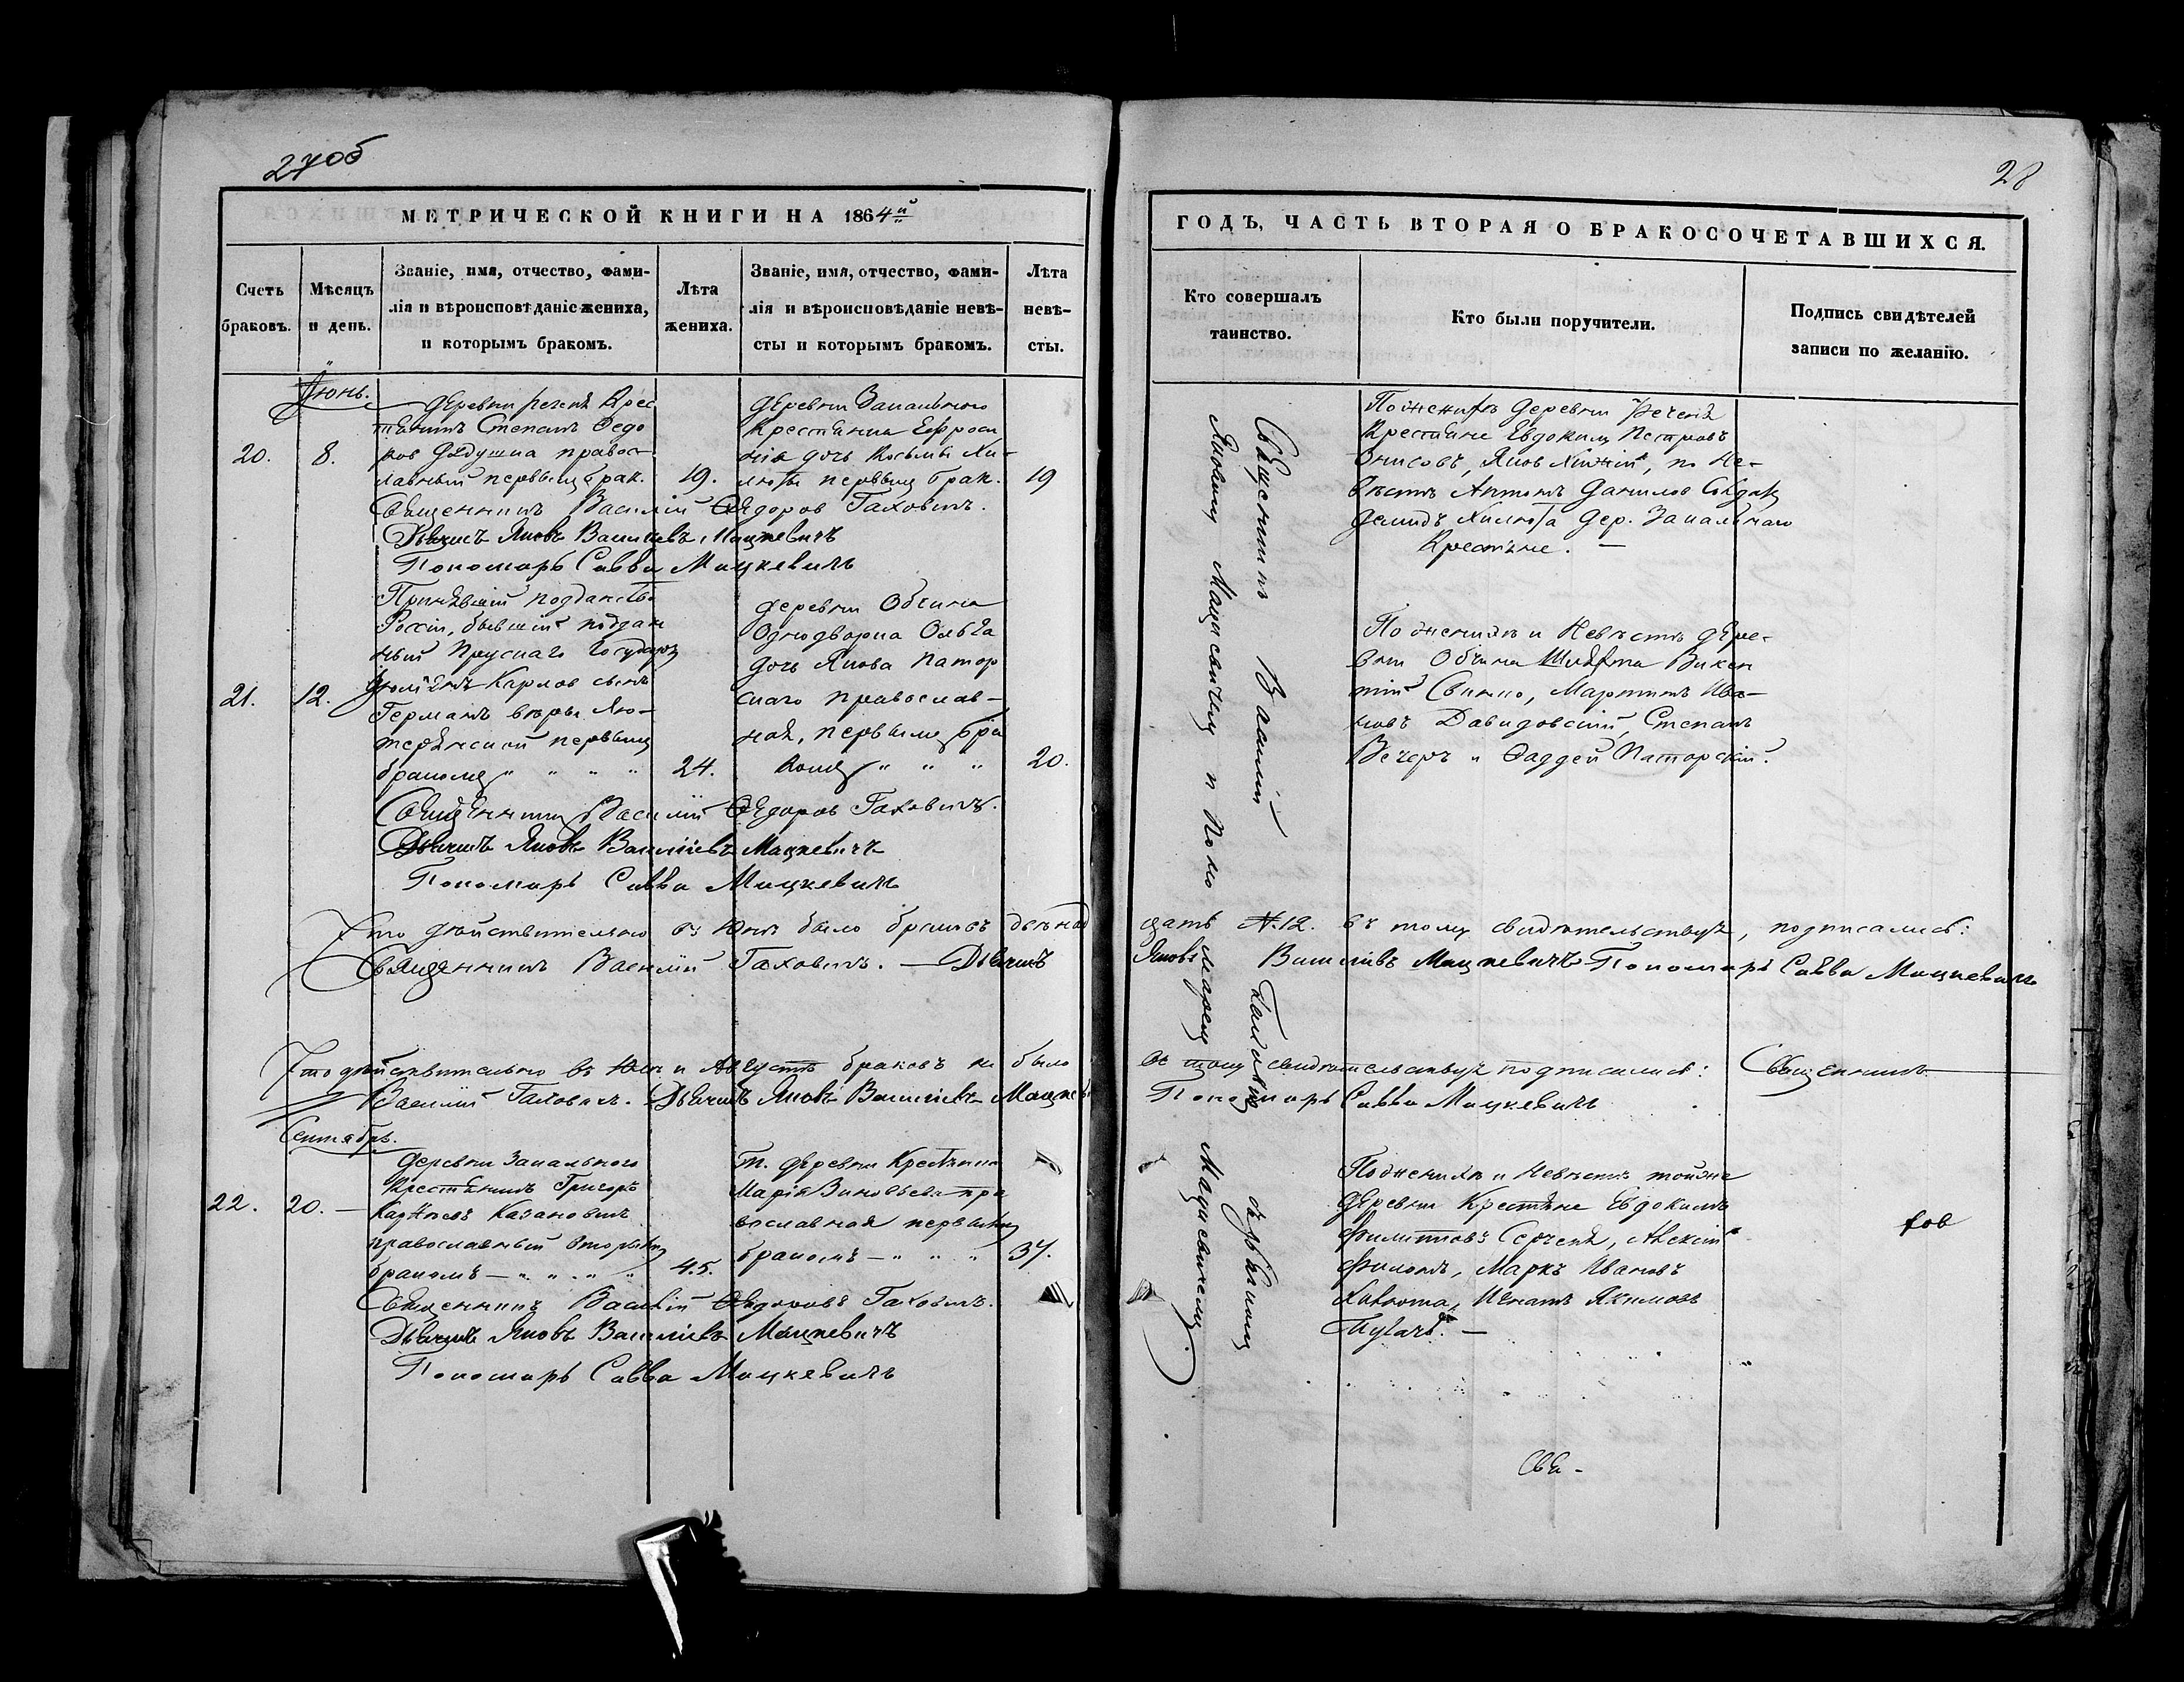 27об
МЕТРИЧЕСКОЙ КНИГИ НА 1864й
Счетъ браковъ.
Мѣсяцъ и день.
Званіе, имя, отчество, фами-
лія и вѣроисповѣданіе жениха,
и которымъ бракомъ.
Лѣта
жениха.
Званіе, имя, отчество, фами-
лія и вѣроисповѣданіе невѣ-
сты и которымъ бракомъ.
Лѣта
невѣ-
сты.
Іюнь.
20.
8.
деревни Крес
тьянинъ Степанъ Федо
ров правос-
лавный первымъ брак.
19.
деревни Запальнаго
Крестьянка Ефроси
нія дочь Козьмы Хи-
люты первымъ брак.
19
Священникъ Василій Федоров Гаховичъ.
Дьячекъ Яковъ Васильевъ Мацкевичъ
Пономарь Савва Мацкевичъ
21.
12.
Принявшій подданство
Россіи, бывшій поддан
ный Прускаго Государя
Карлов сынъ
Германъ вѣры Лю-
теранской первымъ
бракомъ " " " "
24.
деревни Обчина
Однодворка Ольга
дочь Якова Патор
скаго православ-
ная, первымъ бра
комъ " " "
20.
Священникъ Василій Федоров Гаховичъ.
Дьячекъ Яковъ Васильевъ Мацкевичъ
Пономарь Савва Мацкевичъ
Что дѣйствительно въ Юнѣ было браковъ двѣнад
Священникъ Василій Гаховичъ. — Дьячекъ
Что дѣйствительно въ Юлѣ и Августѣ браковъ не было
Василій Гаховичъ. Дьячекъ Яковъ Васильевъ Мацкев
Сентябрь.
22.
20. —
Деревни Запальнаго
Крестьянинъ Григорій
Казановичъ
православный вторымъ
бракомъ — " " " "
45.
т. деревни Крестьянка
Марія Зиновьева пра
вославная первымъ
бракомъ — " " "
37.
Священникъ Василій Федоровъ Гаховичъ.
Дьячекъ Яковъ Васильевъ Мацкевичъ
Пономарь Савва Мацкевичъ
28
ГОДЪ, ЧАСТЬ ВТОРАЯ О БРАКОСОЧЕТАВШИХСЯ.
Кто совершалъ
таинство.
Кто были поручители.
Подпись свидѣтелей
записи по желанію.
Священникъ Василій Гаховичъ съ дьячкомъ
Яковомъ Мацкевичемъ и Поно марем Мацкевичемъ
По женихѣ деревни
Крестьяне Евдокимъ Петровъ
по Не-
вѣстѣ Антонъ Данилов
Демидъ Хилюта дер. Запальнаго
Крестьяне. —
По женихѣ и Невѣстѣ дере-
вни Обчина Шляхта Викен
тій Мартинъ Ива-
новъ Давидовскій, Степанъ
Вечеръ и Фаддей Паторскій.
цать №12. въ томъ свидѣтельствуя, подписались:
Яковъ Васильевъ Мацкевичъ Пономарь Савва Мацкевичъ
въ томъ свидѣтельствуя подписались: Священникъ
Пономарь Савва Мацкевичъ
По женихѣ и Невѣстѣ тойже
деревни Крестьяне Евдокимъ
Филипповъ Алексій
Филонъ, Маркъ Ивановъ
Хилюта, Игнатъ Якимовъ
Свя-